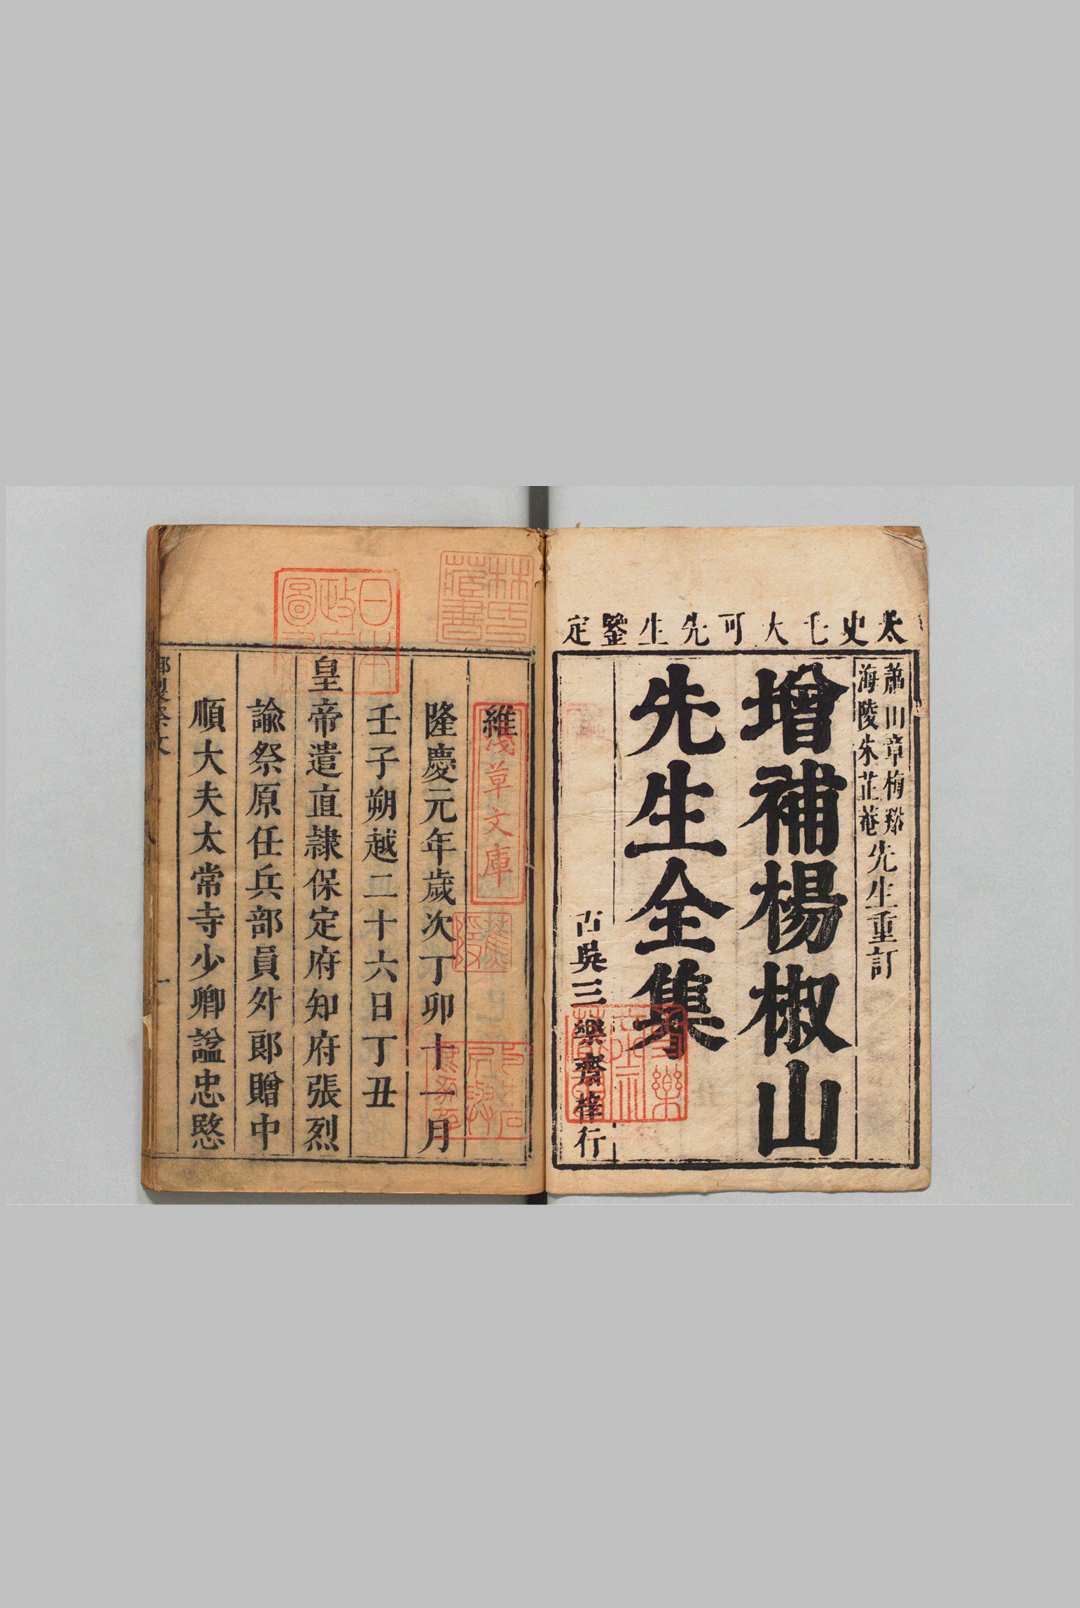 太史毛大可先生鑒定
蕭山章梅谿
海陵朱芷菴
先生重訂
增補楊椒山
先生全集
古吳三樂齋梓行
維
隆慶元年歲次丁卯十一月
壬子朔越二十六日丁丑
皇帝遣直隸保定府知府張烈
諭祭原任兵部員外郎贈中
順大夫太常寺少卿諡忠愍
林氏藏書
日本政府圖書
淺草文庫